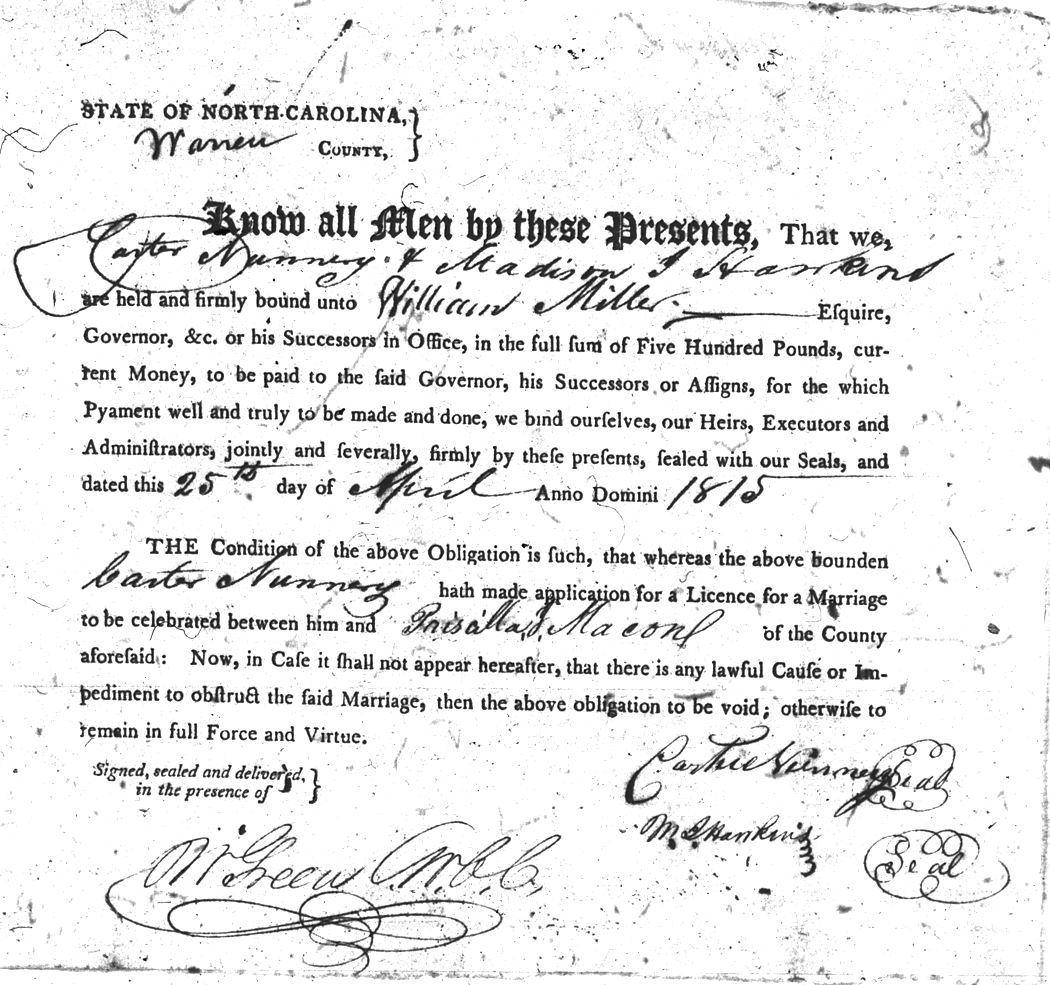 STATE OF NORTH-CAROLINA,
Warren COUNTY,
Know all Men by these Presents, That we,
Carter Nunnery & Madison J Hawkins
are held and firmly bound unto William Miller Eſquire,
Governor, &c. or his Successors in Office, in the full ſum of Five Hundred Pounds, cur-
rent Money, to be paid to the ſaid Governor, his Successors or Aſſigns, for the which
Pyament well and truly to be made and done, we bind ourſelves, our Heirs, Executors and
Adminiſtrators, jointly and ſeverally, firmly by theſe preſents, ſealed with our Seals, and
dated this 25th day of April Anno Domini 1815
THE Condition of the above Obligation is ſuch, that whereas the above bounden
Carter Nunnery hath made application for a Licence for a Marriage
to be celebrated between him and Prisilla J. Macon of the County
aforeſaid: Now, in Caſe it ſhall not appear hereafter, that there is any lawful Cauſe or Im-
pediment to obſtruct the ſaid Marriage, then the above obligation to be void; otherwiſe to
remain in full Force and Virtue.
Signed, sealed and delivered,
in the presence of
Carter Nunnery Seal
M J Hawkins
Seal
Wm Green C.W.C.C.